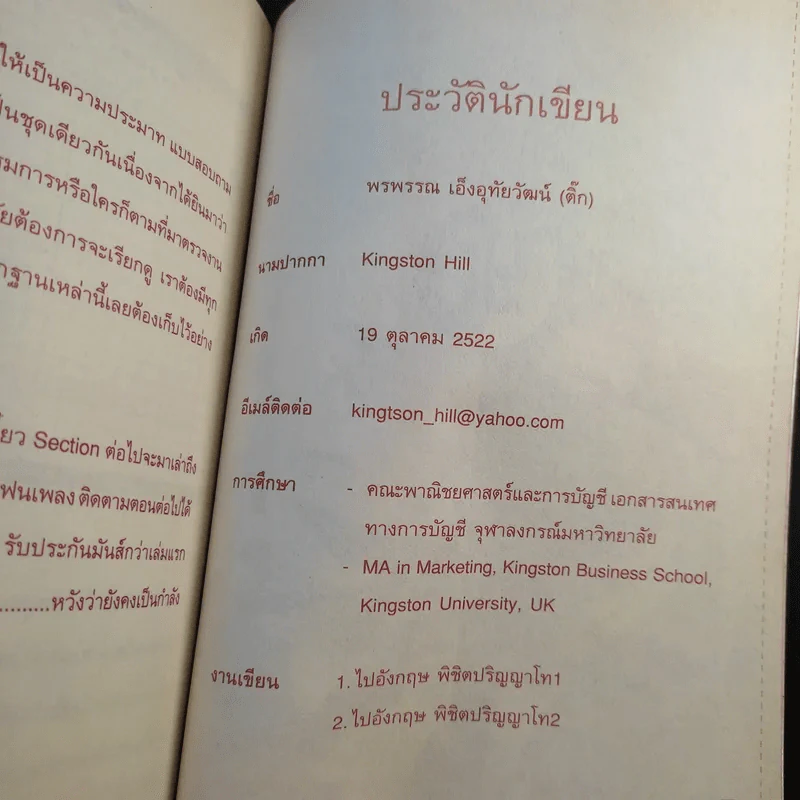 ให้เป็นความประมาท แบบสอบถาม
เป็นชุดเดียวกันเนื่องจากได้ยินมาว่า
รมการหรือใครก็ตามที่มาตรวจงาน
ต้องการจะเรียกดู เราต้องมีทุก
กฐานเหล่านี้เลยต้องเก็บไว้อย่าง
Section ต่อไปจะมาเล่าถึง
ฟนเพลง ติดตามตอนต่อไปได้
รับประกันมันส์กว่าเล่มแรก
.........หวังว่ายังคงเป็นกำลัง
ประวัตินักเขียน
ชื่อ พรพรรณ เอ็งอุทัยวัฒน์ (ติ๊ก)
นามปากกา Kingston Hill
เกิด 19 ตุลาคม 2522
อีเมล์ติดต่อ kingtson_hill@yahoo.com
การศึกษา - คณะพาณิชยศาสตร์และการบัญชี เอกสารสนเทศ
ทางการบัญชี จุฬาลงกรณ์มหาวิทยาลัย
- MA in Marketing, Kingston Business School,
Kingston University, UK
งานเขียน 1. ไปอังกฤษ พิชิตปริญญาโท1
2. ไปอังกฤษ พิชิตปริญญาโท2